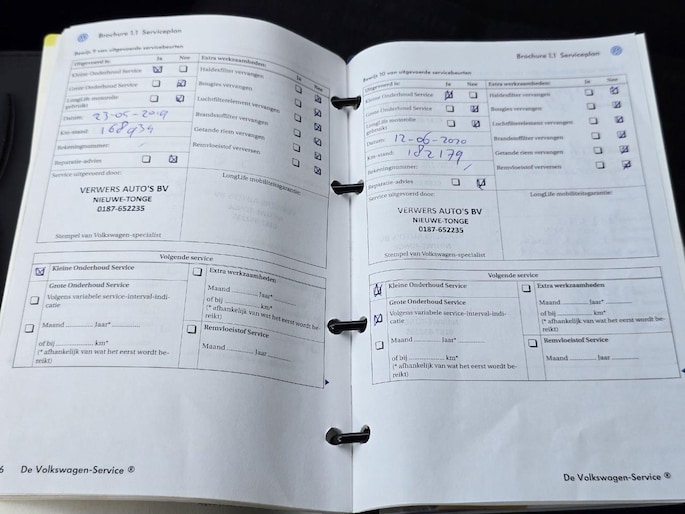 Brochure 1.1 Serviceplan
Bewijs 9 van uitgevoerde servicebeurten
Uitgevoerd is: Ja Nee
Kleine Onderhoud Service
Grote Onderhoud Service
LongLife motorolie
gebruikt
Datum: 23-05-2019
Km-stand: 168934
Rekeningnummer:
Reparatie-advies
Extra werkzaamheden: Ja Nee
Bougies vervangen
Luchtfilterelement vervangen
Brandstoffilter vervangen
Getande riem vervangen
Remvloeistof verversen
Service uitgevoerd door:
LongLife mobiliteitsgarantie:
VERWERS AUTO'S BV
NIEUWE-TONGE
0187-652235
Stempel van Volkswagen-specialist
Volgende service
Kleine Onderhoud Service
Grote Onderhoud Service
Volgens variabele service-interval-indi-
catie
Maand ............ Jaar*
of bij ............ km*
(* afhankelijk van wat het eerst wordt be-
reikt)
Extra werkzaamheden
Maand ............ Jaar*
of bij ............ km*
(* afhankelijk van wat het eerst wordt be-
reikt)
Remvloeistof Service
Maand ............ Jaar
6 De Volkswagen-Service ®
Brochure 1.1 Serviceplan
Bewijs 10 van uitgevoerde servicebeurten
Uitgevoerd is: Ja Nee
Kleine Onderhoud Service
Grote Onderhoud Service
LongLife motorolie
gebruikt
Datum: 12-06-2020
Km-stand: 182179
Rekeningnummer:
Reparatie-advies
Extra werkzaamheden: Ja Nee
Bougies vervangen
Luchtfilterelement vervangen
Brandstoffilter vervangen
Getande riem vervangen
Remvloeistof verversen
Service uitgevoerd door:
LongLife mobiliteitsgarantie:
VERWERS AUTO'S BV
NIEUWE-TONGE
0187-652235
Stempel van Volkswagen-specialist
Volgende service
Kleine Onderhoud Service
Grote Onderhoud Service
Volgens variabele service-interval-indi-
catie
Maand ............ Jaar*
of bij ............ km*
(* afhankelijk van wat het eerst wordt be-
reikt)
Extra werkzaamheden
Maand ............ Jaar*
of bij ............ km*
(* afhankelijk van wat het eerst wordt be-
reikt)
Remvloeistof Service
Maand ............ Jaar
De Volkswagen-Service ®